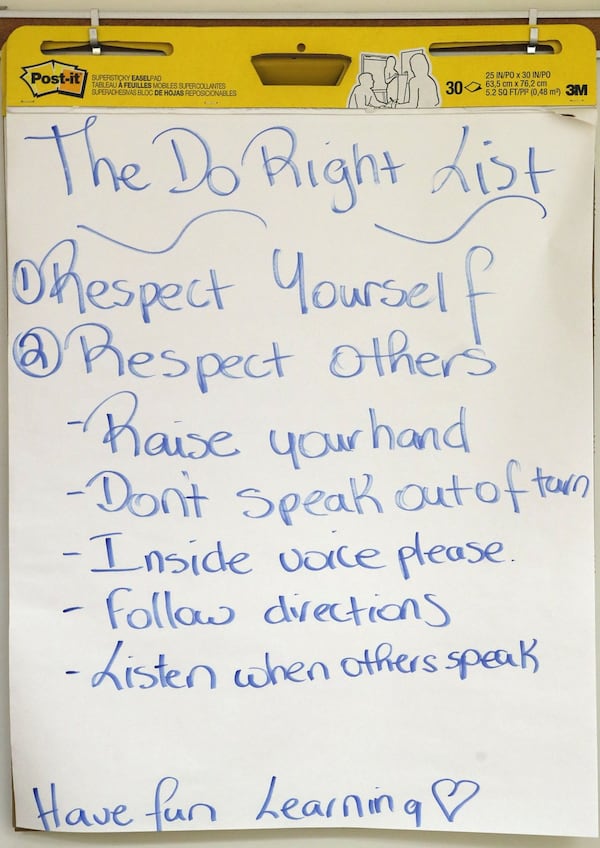 Post-it
SUPERSTICKY EASELPAD
TABLEAU À FEUILLES MOBILES SUPERCOLLANTES
SUPERADHESIVAS BLOC DE HOJAS REPOSICIONABLES
30
25 IN/PO x 30 IN/PO
63,5 cm x 76,2 cm
5.2 SQ FT/PI² (0,48 m²)
3M
The Do Right List
① Respect Yourself
② Respect others
- Raise your hand
- Don't speak out of turn
- Inside voice please.
- Follow directions
- Listen when others speak
Have fun Learning ♡